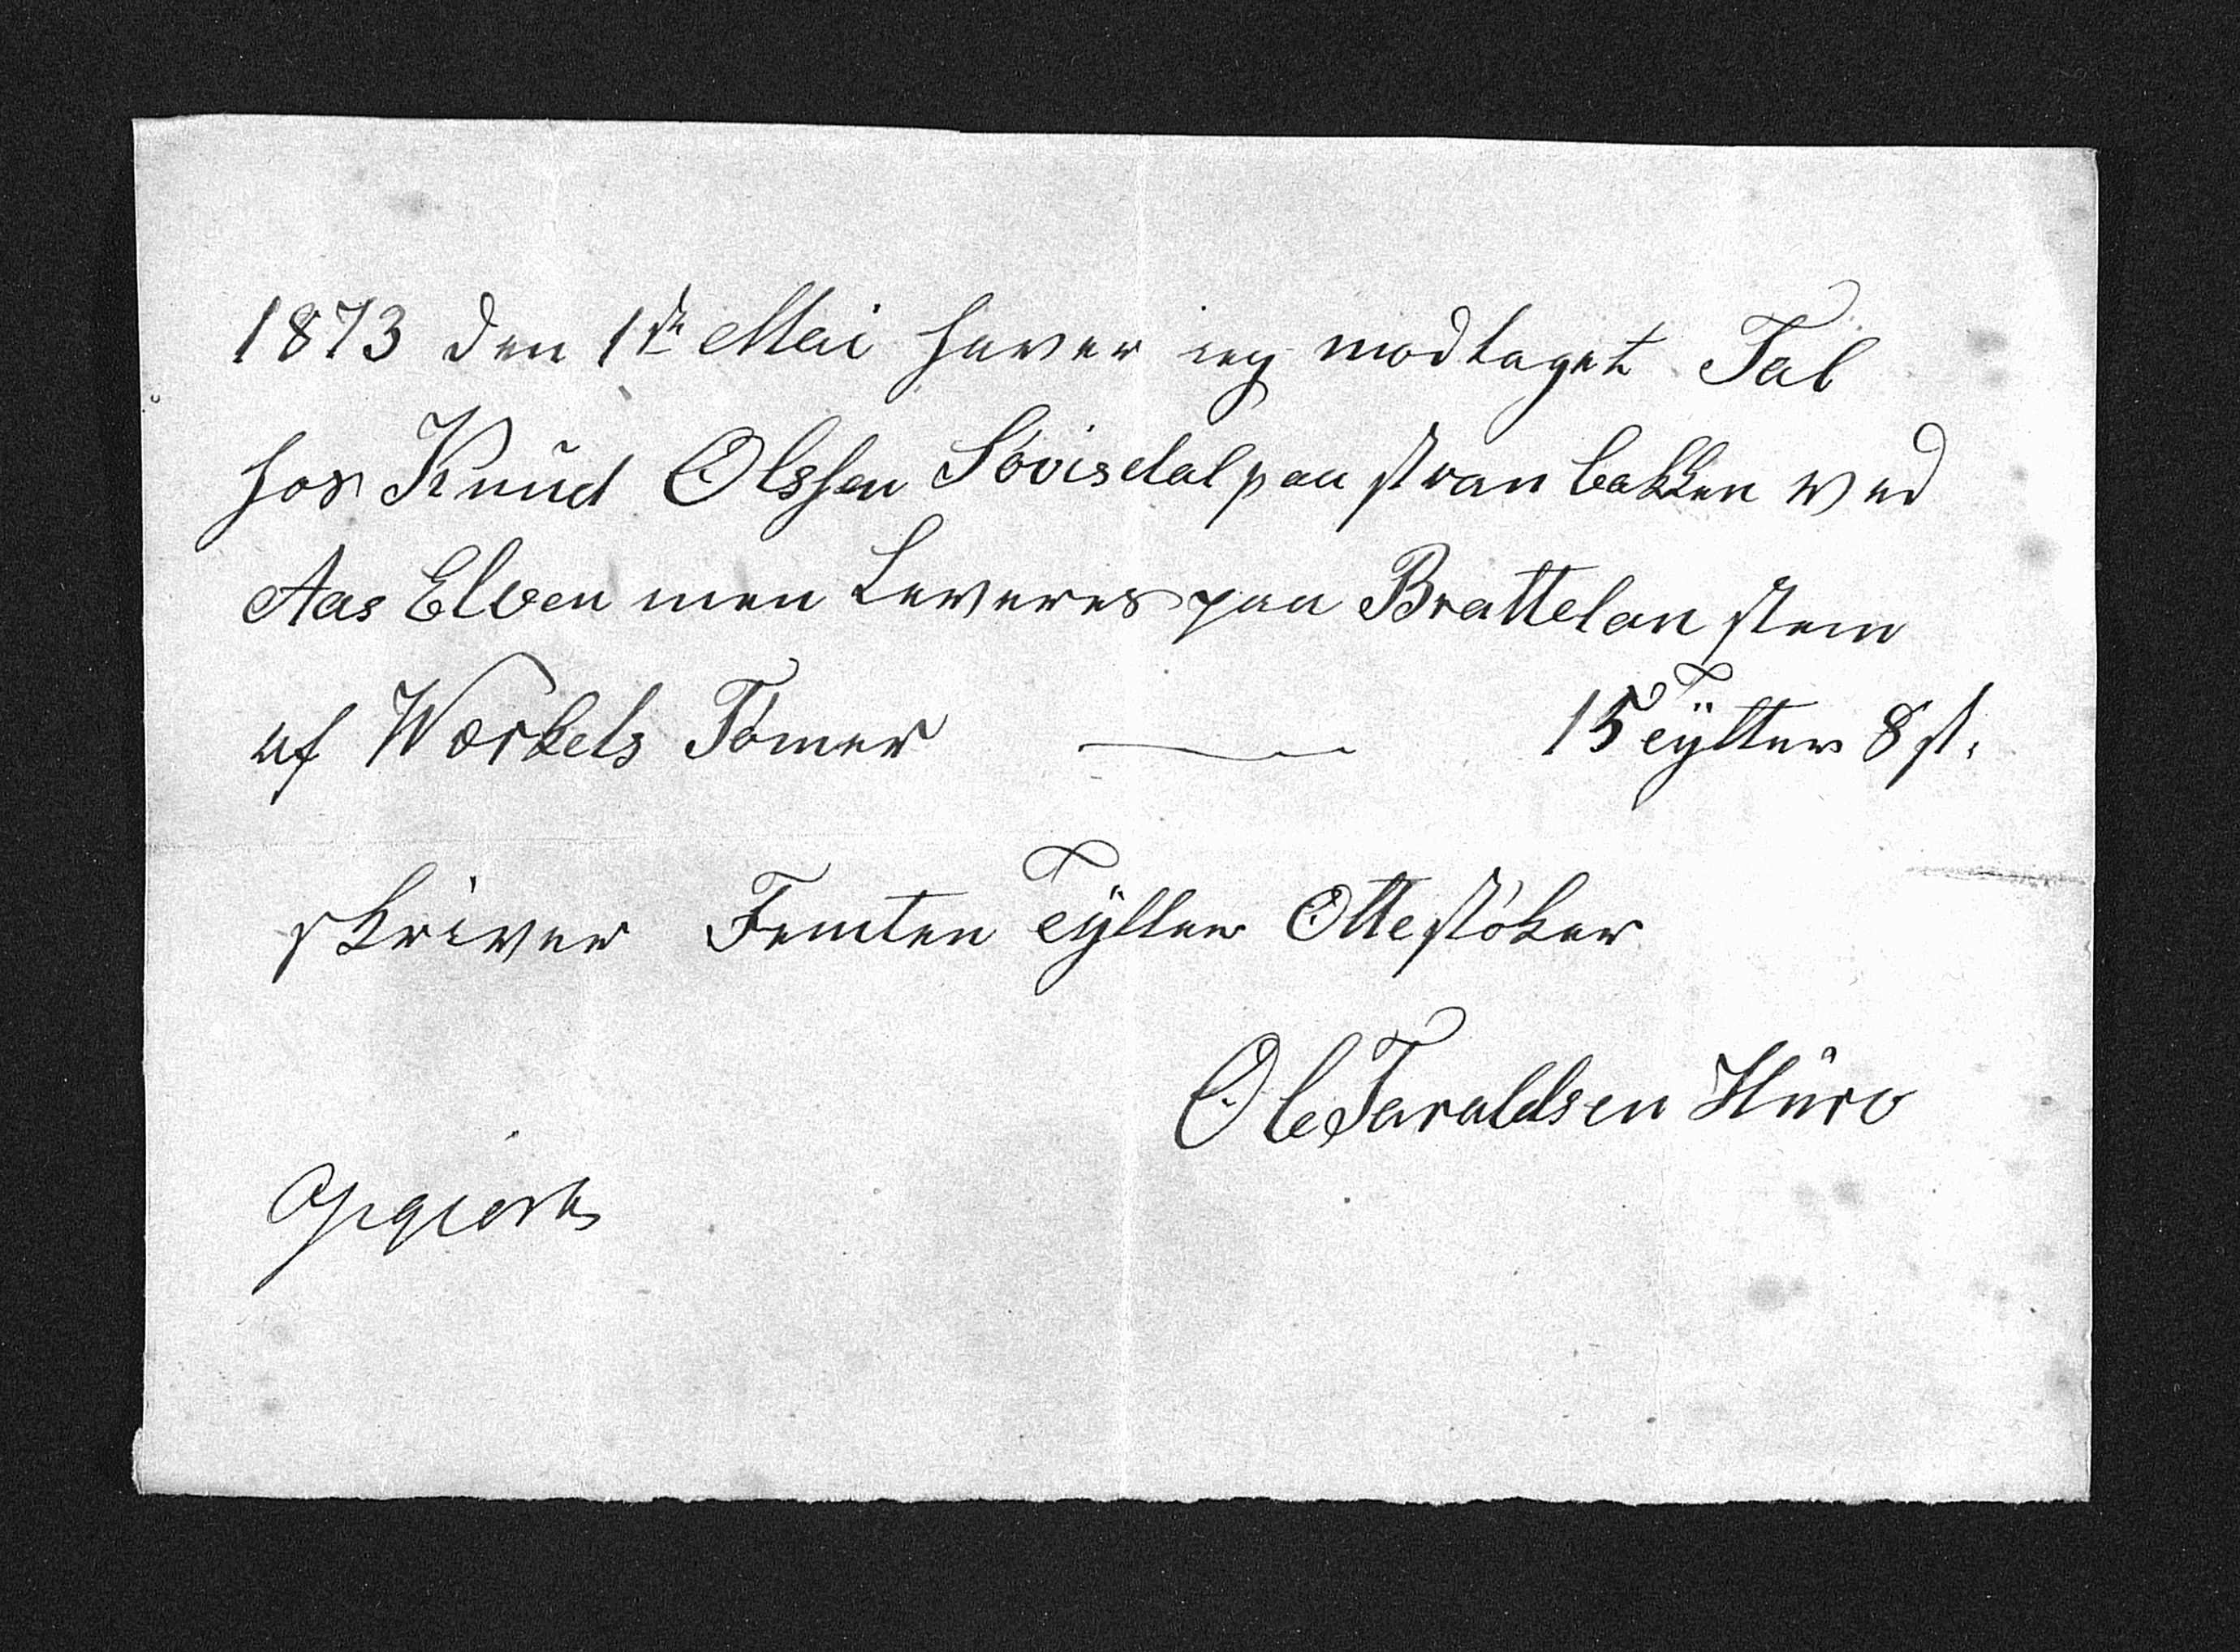 1873 den 1ste Mai haver ieg modtaget Tal
hos Knud Olssen Sövisdal paa stran bakken wed
Aas Elven men Leveres paa Brattelan stem
af Wærkels Tömer — 15 Tÿlter 8 st.
skriver Femten Tÿlter Otte stöker
Ole Taraldsen Huro
Opgiort